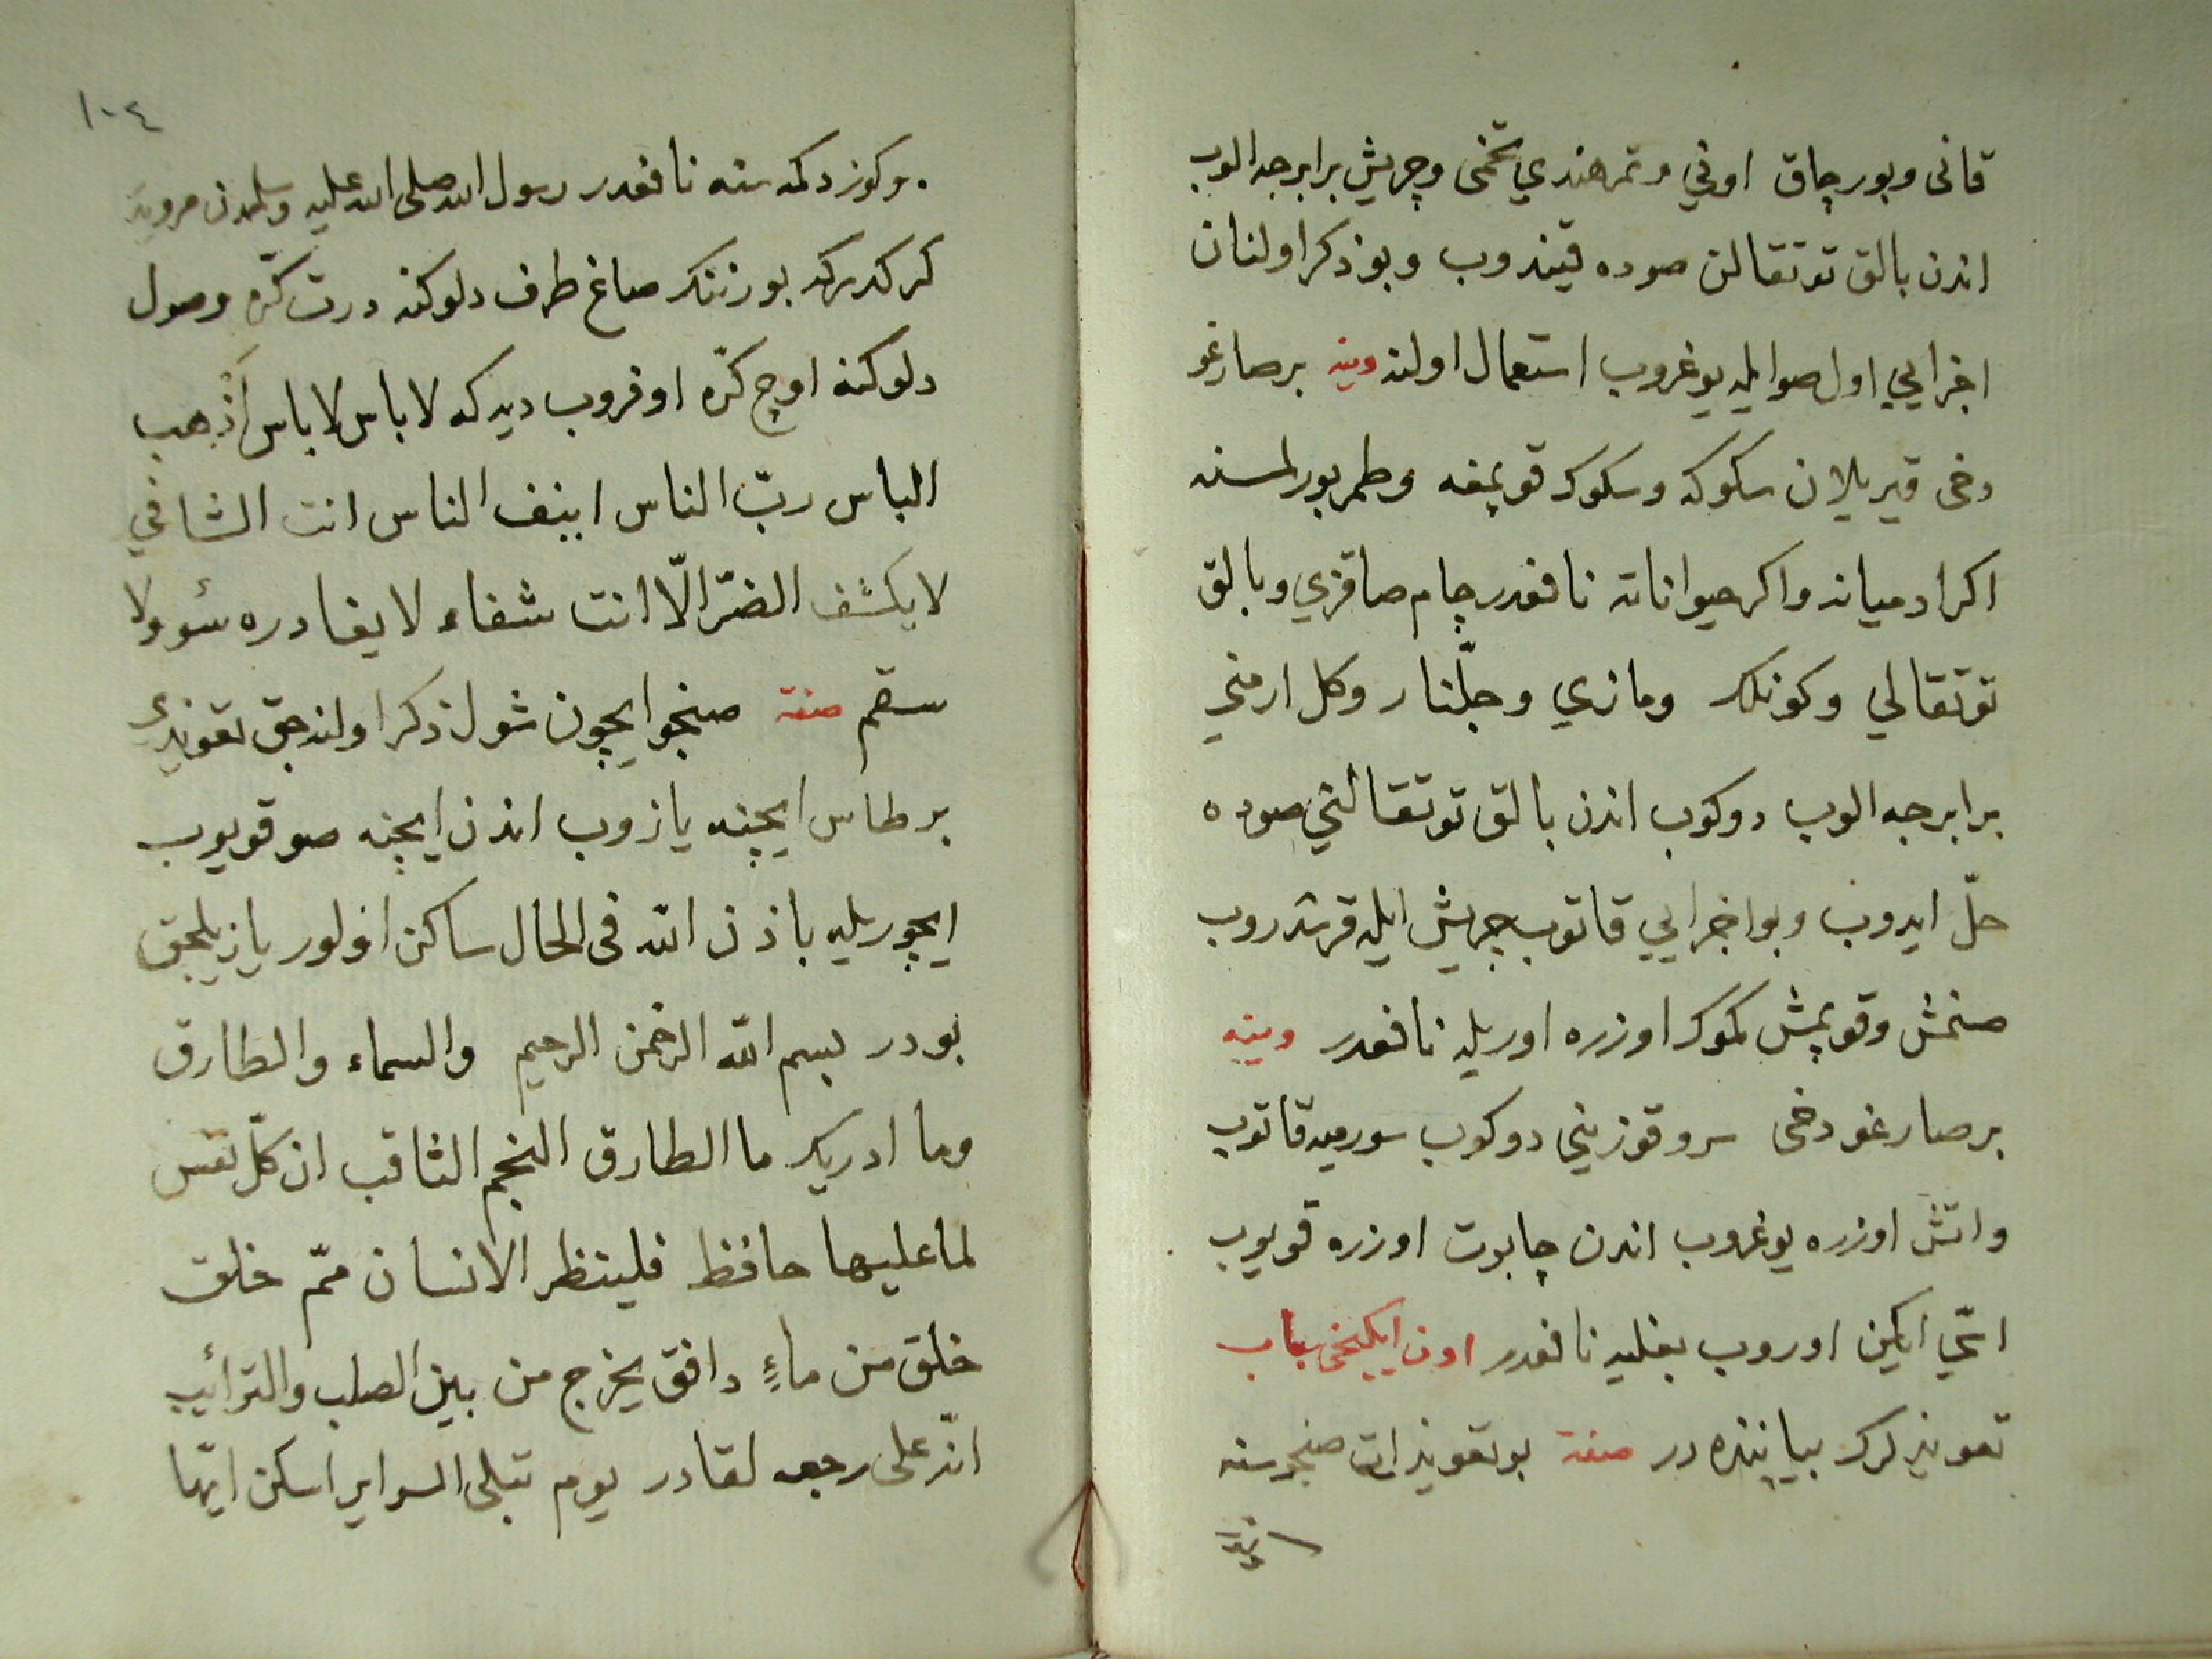 قانی وبورچاق اونی وتمرهندي تخمی وچریش برابرجه الوب
اندن بالق توتقالن صوده قیندوب وبوذکر اولنان
اجزایي اول صوایله یوغروب استعمال اولنه وینه برصارغو
دخی قیریلان سکوکه وسکوك قویمغه وطمربورلمسنه
اکر ادمیانه واکر حیواناته نافعدر چام صاقزي وبالق
توتقالي وکونلك ومازي وجلّنار وکل ارمني
برابرجه الوب دوکوب اندن بالق توتقالني صوده
حلّ ایدوب وبواجزایي قاتوب چریش ایله قرشدروب
صنمش وقوپمش کموك اوزره اوریله نافعدر وینه
برصارغو دخی سرو قوزیني دوکوب سورمیه قاتوب
واتش اوزره یوغروب اندن چاپوت اوزره قویوب
اتّي اکین اوروب بغلیه نافعدر اون ایکنجی باب
تعویذلرك بیاننده در صفة بوتعویذات صنجوسنه
١٠٤
وکوز دکمه سنه نافعدر رسول الله صلی الله علیه وسلمدن مرویدر
کرکدرکه بورننك صاغ طرف دلوکنه درت کرّه وصول
دلوکنه اوچ کرّه اوفروب دیه که لاباس لاباس اَذْهب
الباس ربّ الناس اشف الناس انت الشافي
لایکشف الضرّ الّا انت شفاء لایغادره سئو ولا
سقم صفة صنجو ایچون شول ذکر اولنه جق تعویذي
برطاس ایچنه یازوب اندن ایچنه صو قویوب
ایچوریله باذن الله فی الحال ساکن اولور یازیلجق
بودر بسم الله الرحمن الرحیم والسماء والطارق
وما ادریك ما الطارق النجم الثاقب ان کلّ نفس
لما علیها حافظ فلینظر الانسان ممّ خلق
خلق من ماءٍ دافق یخرج من بین الصلب والترائب
انّه علی رجعه لقادر یوم تبلی السرایر اسکن ایّها